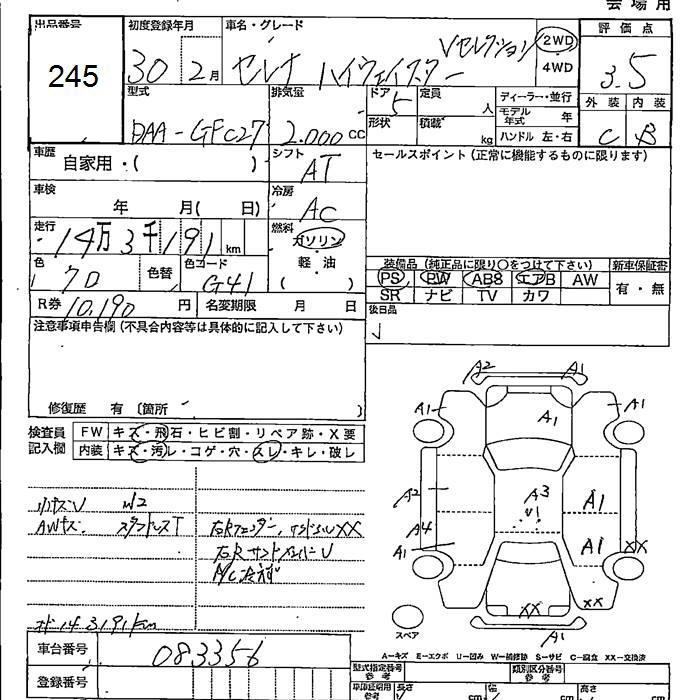 会場用
出品番号 初度登録年月 車名・グレード 評価点
245
30 2月 セレナ ハイウェイスター Vセレクション
2WD
4WD
3.5
外装 内装
C B
型式 排気量 ドア 定員 ディーラー・並行
DAA-GFC27 2.000cc 5 人
形状 積載 kg
モデル年式 年
ハンドル 左・右
車歴 自家用・( )
シフト AT
セールスポイント(正常に機能するものに限ります)
車検 年 月( 日)
冷房 AC
走行 14万3千191km
燃料 ガソリン
軽・油
( )
色 70 色替 色コード G41
装備品(純正品に限り○をつけて下さい) 新車保証書
PS PW ABS エアB AW 有・無
SR ナビ TV カワ
R券 10,190円 名変期限 月 日
後日品
注意事項申告欄(不具合内容等は具体的に記入して下さい)
修復歴 有〔箇所 〕
検査員記入欄
FW キズ・飛石・ヒビ割・リペア跡・X要
内装 キズ・汚レ・コゲ・穴・スレ・キレ・破レ
小キズU W2
AWキズ スタッドレスT
右Rフェンダー、インドシルXX
右RサイドメンバーU
A/C冷えず
メーター 143191km
A2 A1
A1 A1 A1
A2 A3 A1
U1
A4 A1
A1 XX
XX XX
スペア A1
A-キズ E-エクボ U-凹み W-補修跡 S-サビ C-腐食 XX-交換済
車台番号 083356
登録番号
型式指定番号 参考 類別区分番号 参考
車車証明用 参考 長さ 幅 高さ